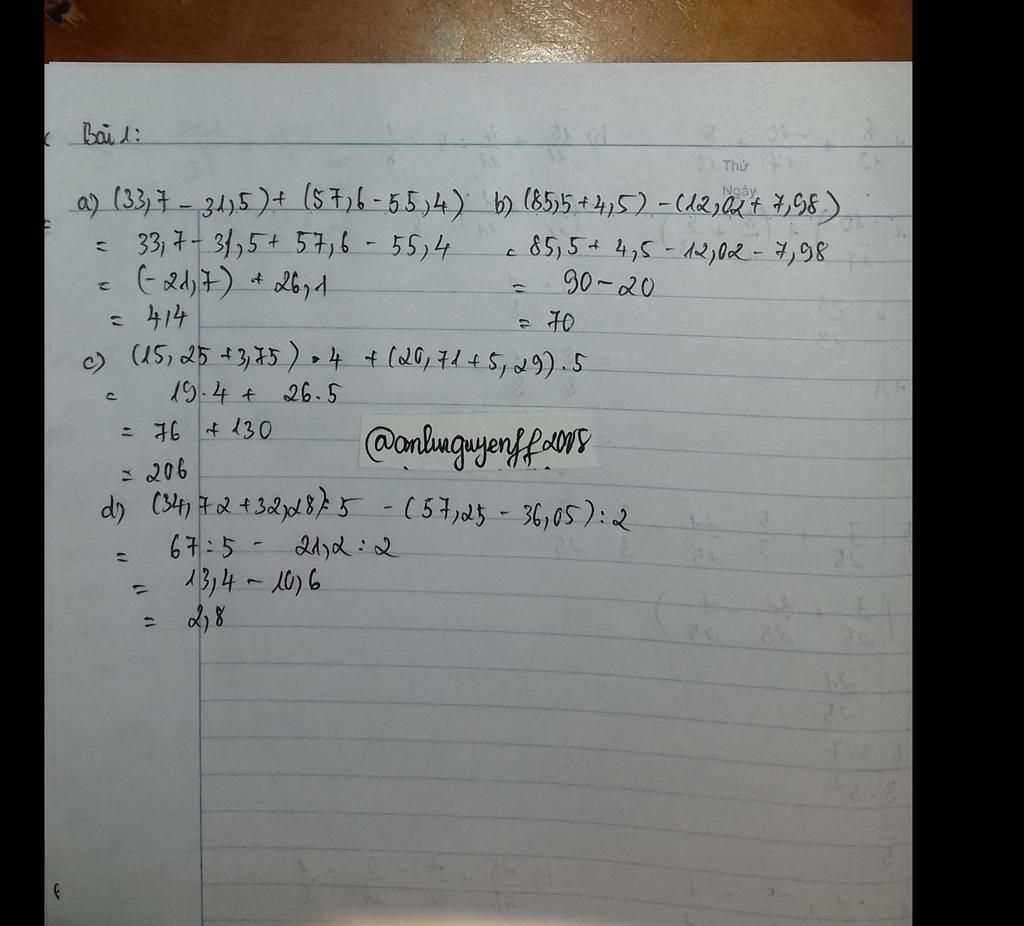 Bài 1:
Thứ
Ngày
a) (33,7 - 31,5) + (57,6 - 55,4)
= 33,7 - 31,5 + 57,6 - 55,4
= (-21,7) + 26,1
= 4,4
b) (85,5 + 4,5) - (12,02 + 7,98)
= 85,5 + 4,5 - 12,02 - 7,98
= 90 - 20
= 70
c) (15,25 + 3,75) . 4 + (20,71 + 5,29) . 5
= 19.4 + 26.5
= 76 + 130
= 206
@anhnguyenff2008
d) (34,72 + 32,28) : 5 - (57,25 - 36,05) : 2
= 67 : 5 - 21,2 : 2
= 13,4 - 10,6
= 2,8